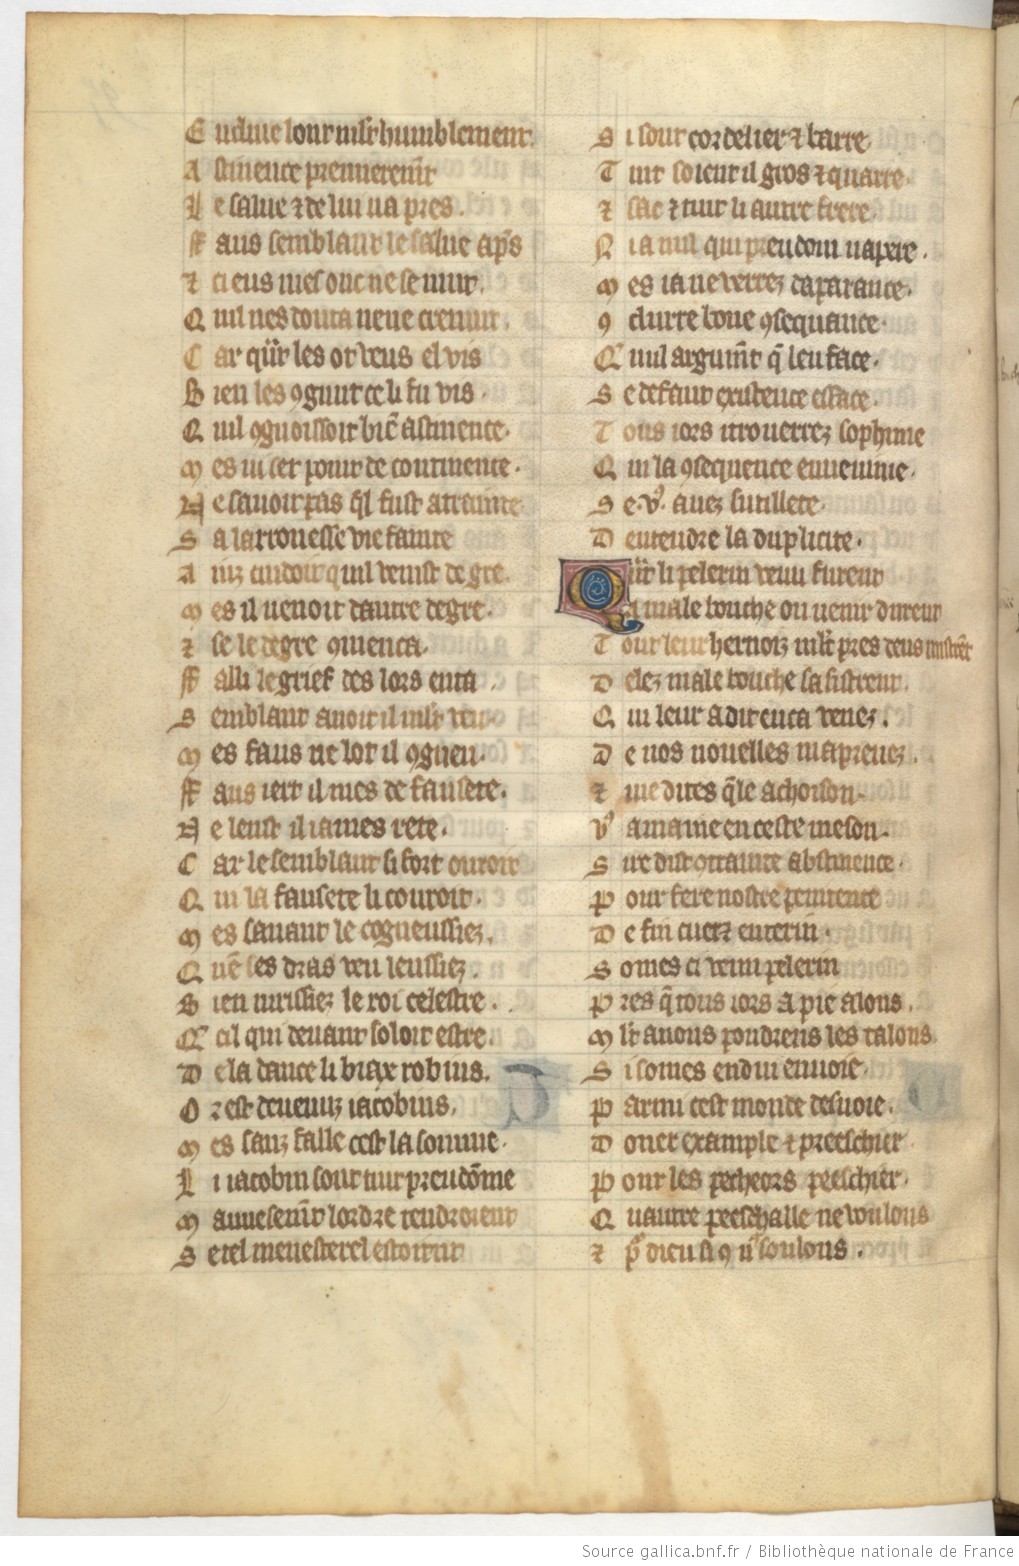 E ndui le lont mlt humblement.
A stinence premierem̃t
L e salue ⁊ de lui ua pres.
ff aus semblant le salue ap̃s
⁊ ci eus mes onc ne se mut.
Q uil nes douta ne ne cremut.
C ar q̃ñt les ot veus el vis
B ien les ꝯgnut ce li fu vis.
Q uil ꝯgnoissoit bie᷑ astinence.
M es ni set point de contrnence.
N e sauoit pas q̃l fust atrainte
S a larrenesse vie fainte
A inz cuidoit quil venist de gre.
M es il uenoit dautre degre.
⁊ se le degre ꝯmenca.
ff alli le gref des lors enca.
S emblant auoit il mlt veu.
M es faus ne lot il ꝯgneu.
ff aus iert il mes de fausete.
N e leust il iames rete.
C ar le semblant si fort ouroit
Q ui la fausete li couroit.
M es sauant le cogneussiez.
Q ue᷑ ses dras veu leussiez.
B ien iurissiez le roi celestre.
Q͛ cil qui deuant soloit estre.
D e la dance li biax robins.
O r est deuenuz iacobins.
M es sanz falle cest la somme.
L i iacobin sont tuit preudõme
M auuesem̃t lordre tendroient
S e tel menesterel estoient
S i sont cordelier ⁊ barre.
T uit soient il gros ⁊ quarre.
⁊ sac ⁊ tuit li autre frere.
N i a nul qui preudom napere.
M es ia ne verrez daparance.
ꝯ clurre bone ꝯsequance.
Q͛ nul argum̃t q̃ len face.
S e defaut existence efface.
T ous iors i trouerrez sophime
Q ui la ꝯsequence enuenime.
S e. v͛. auez sutillete.
D entendre la duplicite.
Q ñt li pelerin venu furent
A male bouche ou uenir durent
T out leur hernois mlt pres deus mistrẽt
D elez male bouche sasistrent.
Q ui leur a dit enca venez.
D e uos nouelles maprenez.
⁊ me dites q̃le achoison.
v͛ amaine en ceste meson.
S ire dist ꝯtrainte abstinence.
P our fere nostre penitence
D e fin cuer ⁊ enterin.
S omes ci venu pelerin
P res q̃ tous iors a pie alons.
M lt auons poudreus les talons.
S i somes endui enuoie.
P armi cest monde desuoie.
D oner example ⁊ preeschier
P our les pecheors peeschier.
Q uautre peeschalle ne voulons
⁊ p͛ dieu si ꝯ n͛ soulons.